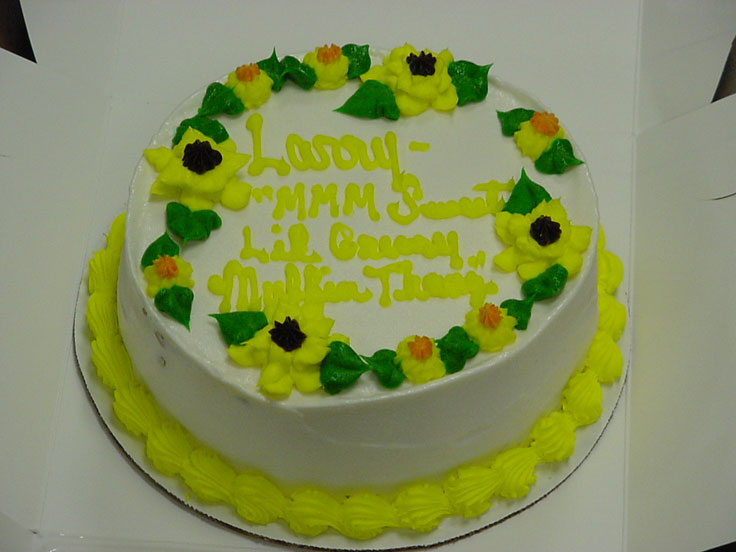 Larry -
"MMM Sweet
Lil Greasy
Muffin Thang"